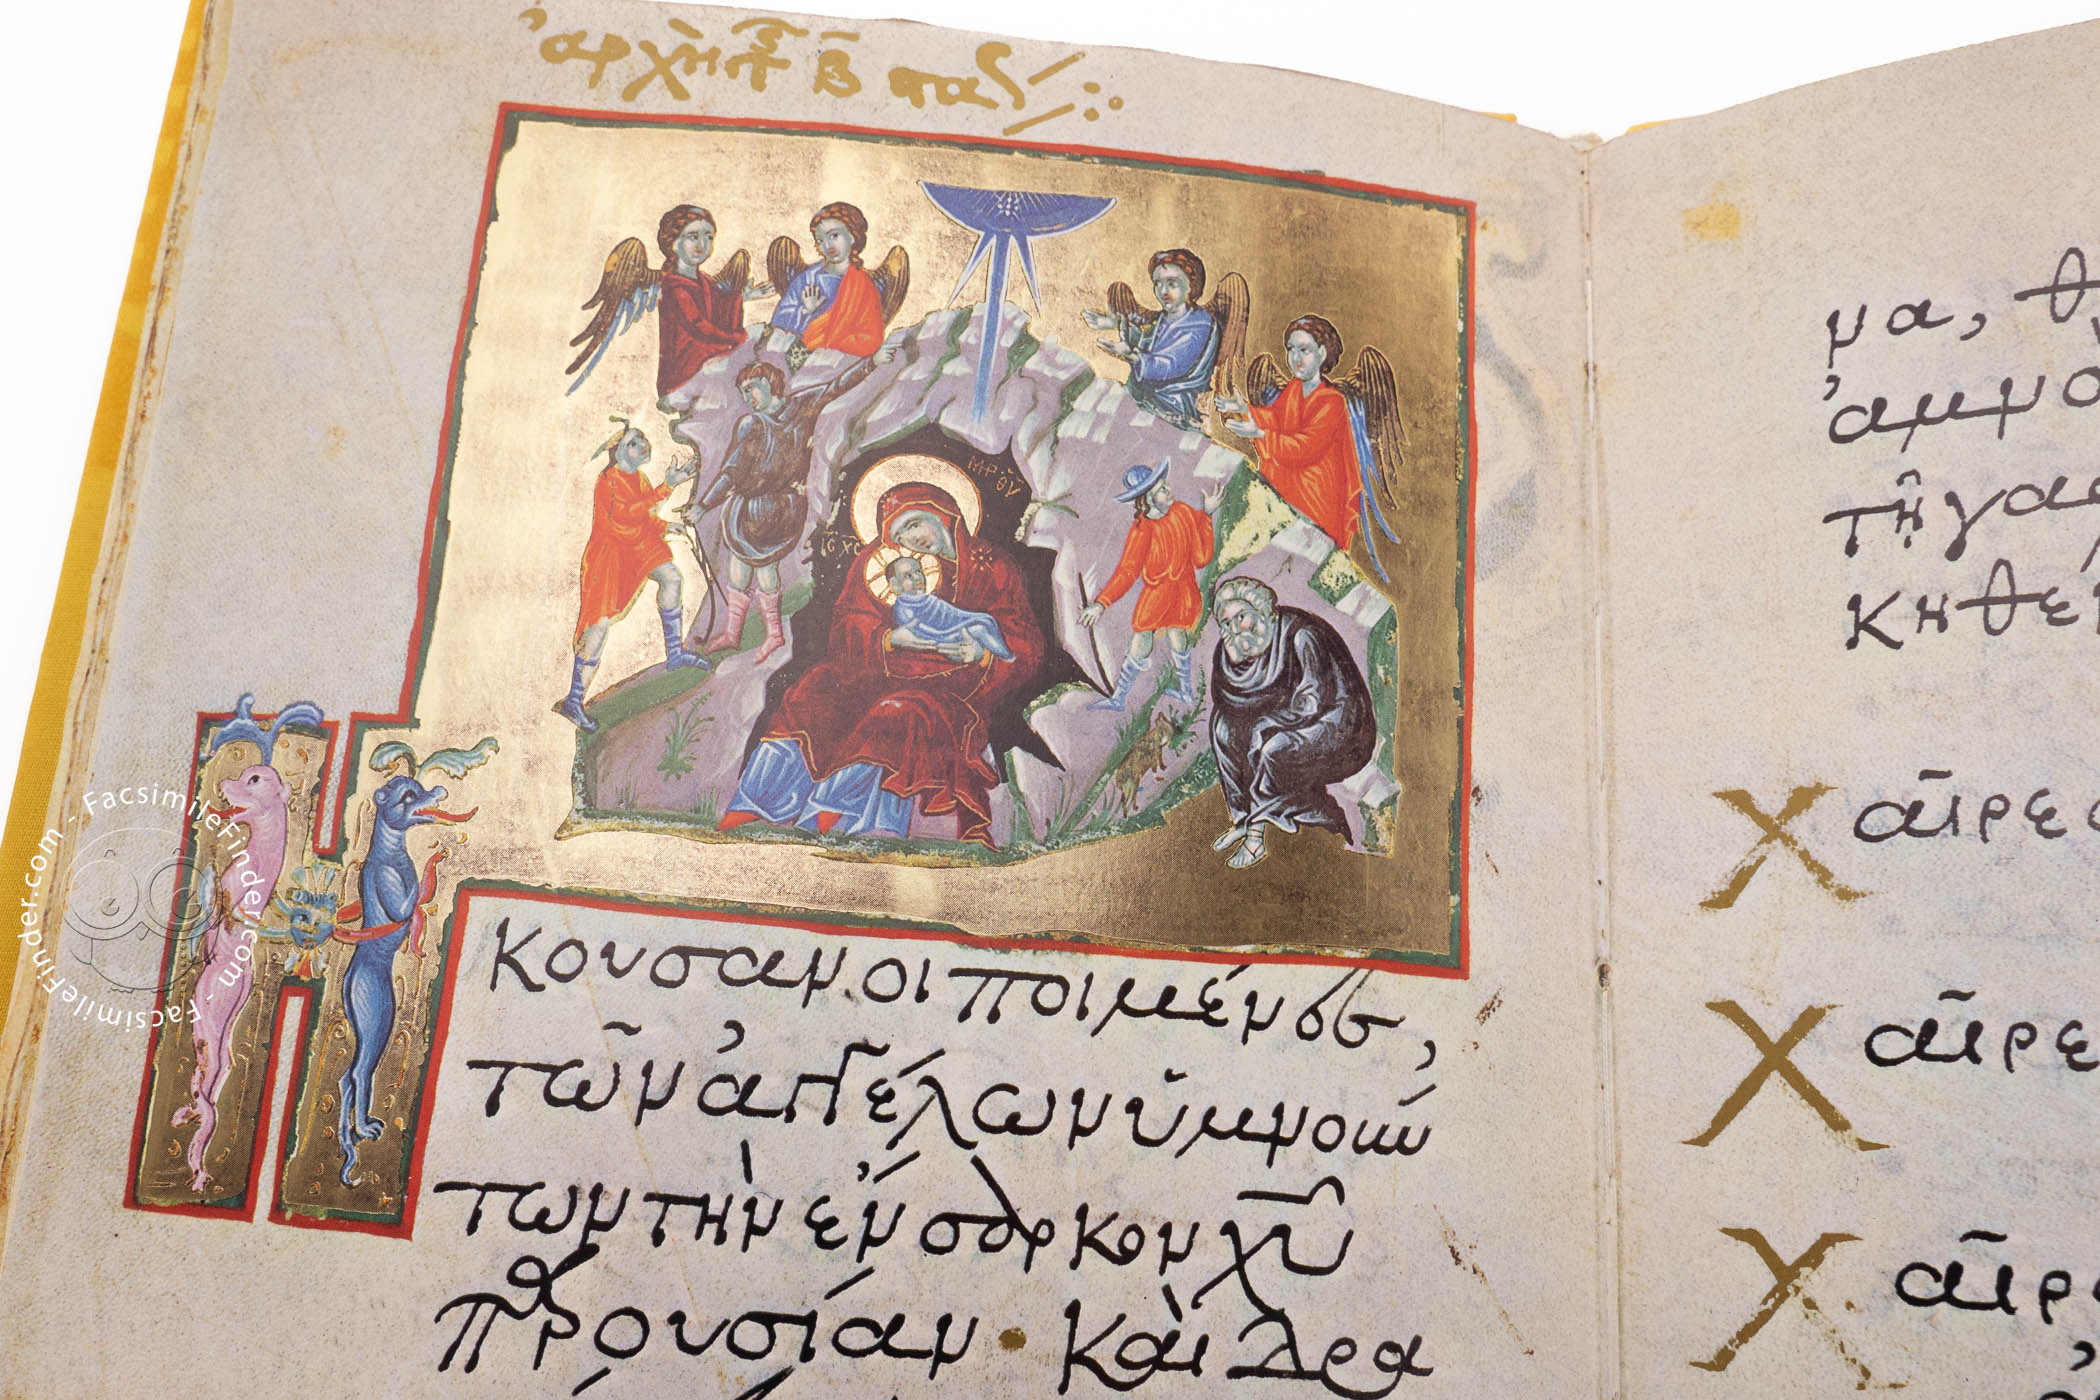 ἀρχὴ τῆς β̄ στάσ
ΜΡ ΘΥ
ΙC ΧC
Ηκουσαν οι ποιμένες,
τῶν ἀγγέλων ὑμνούν
των τὴν ἔνσαρκον χ͞υ
παρουσίαν· καὶ δρα
μα,
ἀμνο
τῇ γα
κηθε
Χαῖρε
Χαῖρε
Χαῖρε
FacsimileFinder.com - FacsimileFinder.com - FacsimileFinder.com